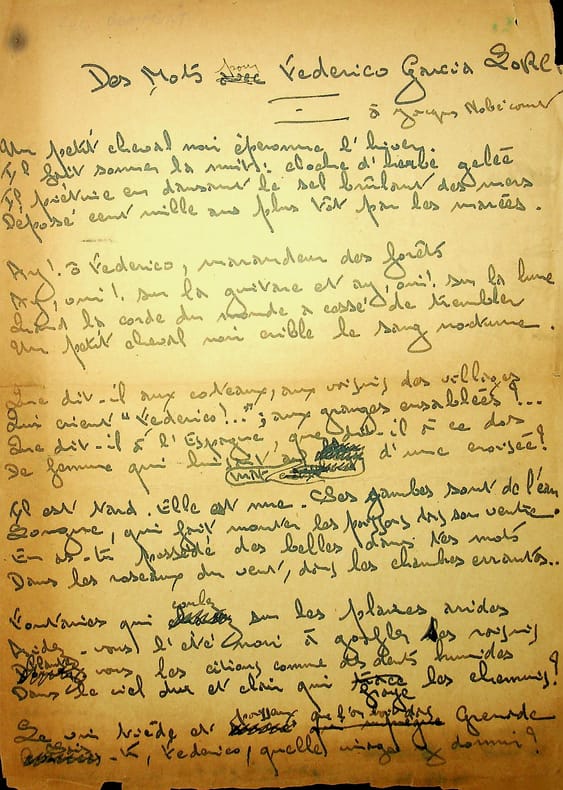 Des Mots pour Federico Garcia Lorc
à Jacques Nobécourt
Un petit cheval noir éperonne l'hiver.
Il fait sonner la nuit : cloche d'herbe gelée
Il piétine en dansant le sel brûlant des mers
Déposé cent mille ans plus tôt par les marées.
Ay ! ô Federico, maraudeur des forêts
Ay, oui ! sur la guitare et ay, oui ! sur la lune
Quand la corde du monde a cessé de trembler
Un petit cheval noir crible le sang nocturne.
Que dit-il aux coteaux, aux voisins des villages
Qui crient "Federico !..." ; aux granges ensablées ?...
Que dit-il à l'Espagne, que dit-il à ce dos
De femme qui luisait au d'une croisée ?
Il est tard. Elle est nue. Ses jambes sont de l'eau
Longue, qui fait monter les poissons dans son ventre.
En as-tu possédé des belles dans tes mots
Dans les roseaux du vent, dans les chambres errantes..
Fontaines qui coulez sur les plaines arides
Aidez-vous l'été noir à gonfler les raisins
vous les citrons comme des dents humides
Dans le ciel dur et clair qui les chemins ?
Le vin tiède et Grenade
-tu, Federico, quelle image y dormit ?